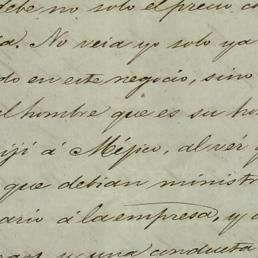 debe no solo el precio
No veia yo solo ya
do en este negocio, sino
hombre que es su
á Méjico, al vér
que debian minist
ario á la empresa, y
y una conducta